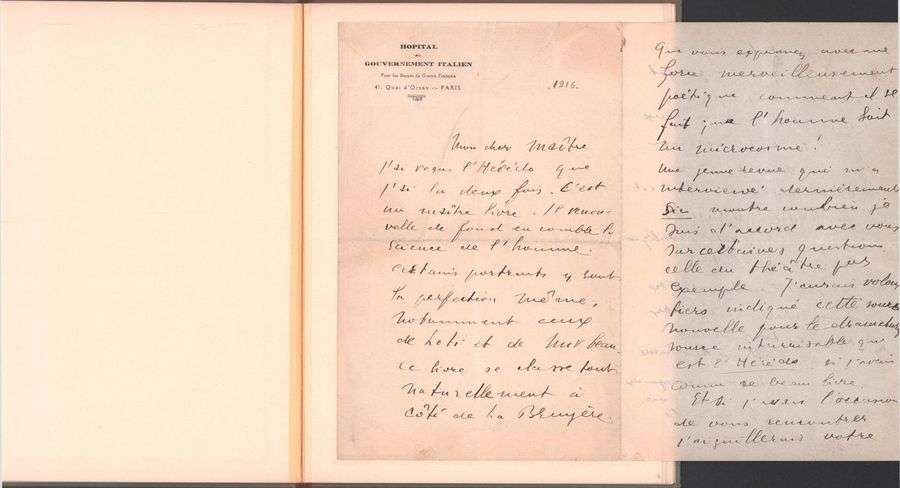 HOPITAL
DU
GOUVERNEMENT ITALIEN
Pour les Blessés de Guerre Français
41, Quai d'Orsay — PARIS
1916.
Mon cher Maître
j'ai reçu l'Hérédo que
j'ai lu deux fois. C'est
un maître livre. Il renou-
velle de fond en comble la
Science de l'homme.
certains portraits y sont
la perfection même,
notamment ceux
de Loti et de Mirbeau.
Ce livre se classe tout
naturellement à
côté de La Bruyère.
Que vous exprimez avec une
force merveilleusement
poétique comment il se
fait que l'homme soit
un microcosme!
Une jeune revue qui m'a
interviewé dernièrement
Sic montre combien je
suis d'accord avec vous
sur certaines questions
celle du théâtre par
exemple. J'aurais volon
tiers indiqué cette source
nouvelle pour le dramaturge
source intarissable qui
est l'Hérédo si j'avais
connu ce beau livre
Et si j'avais l'occasion
de vous rencontrer
votre